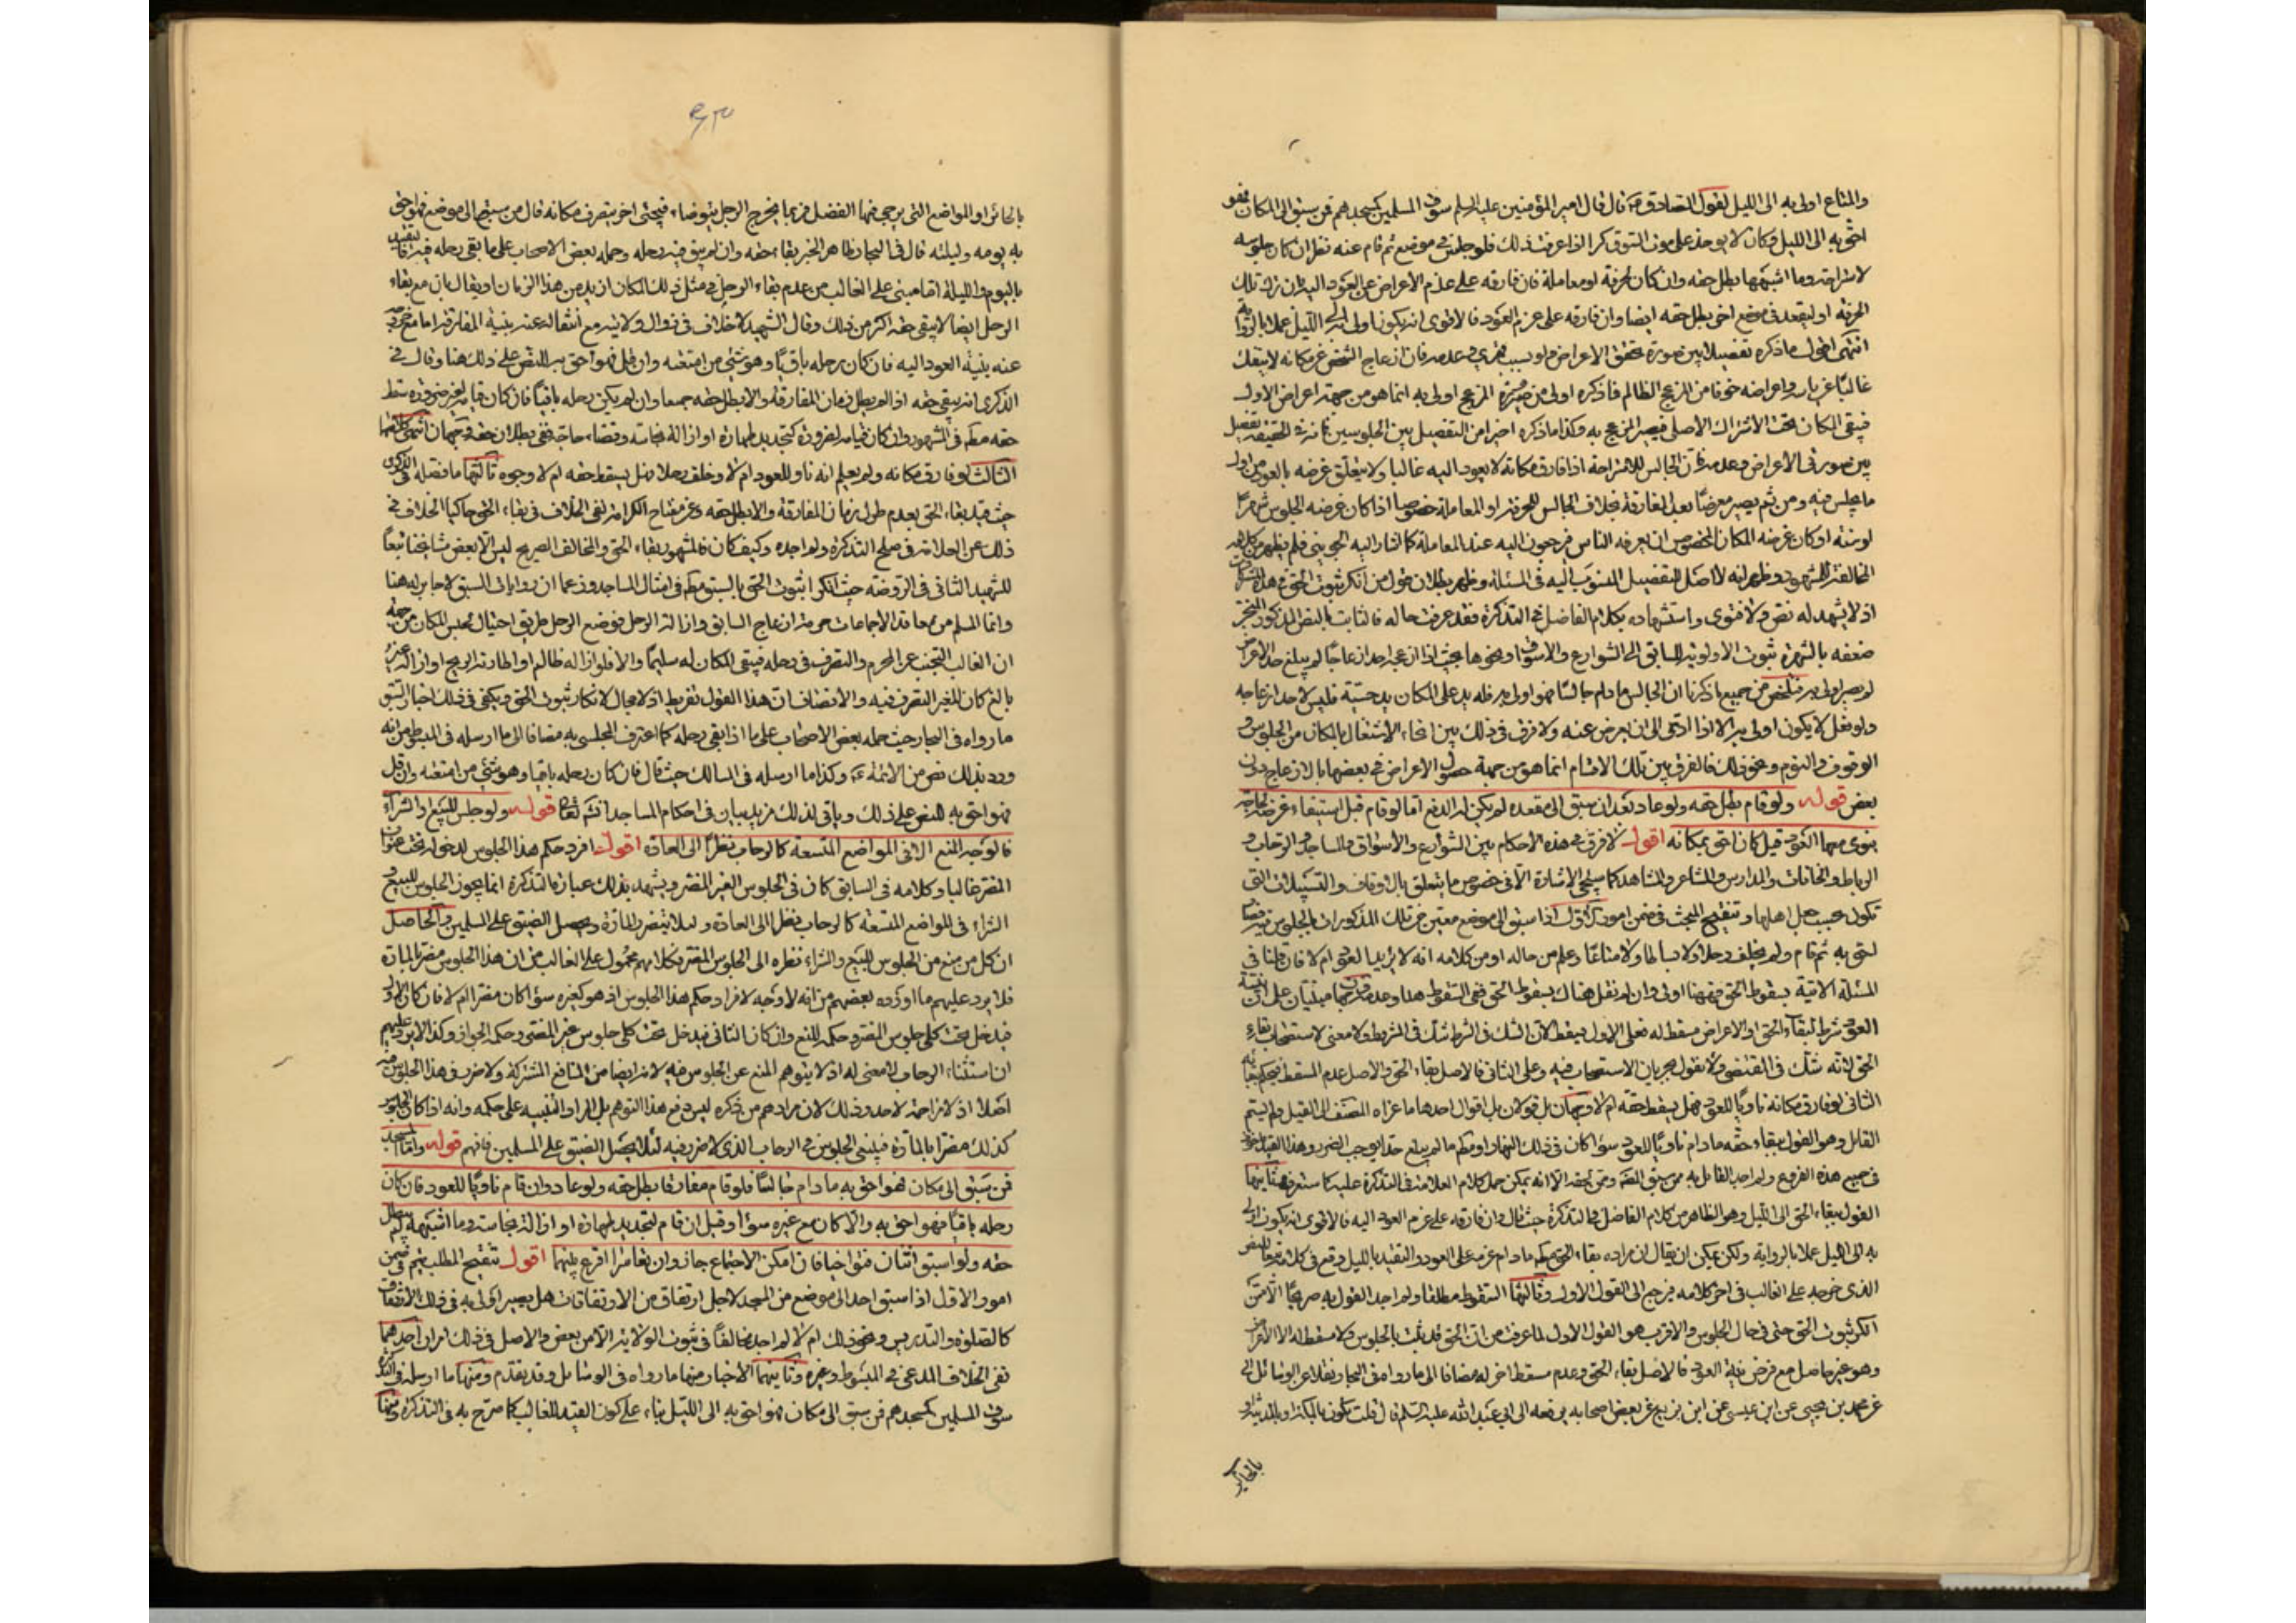 والمتاع اولى به الى الليل لقول الصادق ع قال قال امير المؤمنين عليه السلم سوق المسلمين كمسجدهم فمن سبق الى المكان فهو
احق به الى الليل وكان لا يوخذ على بيوت السوق كرا اذا عرفت ذلك فلو جلس في موضع ثم قام عنه نظر ان كان جلوسه
لاستراحة وما اشبهها بطل حقه وان كان لحرفة او معاملة فان فارقه على عدم الاعراض عن العود اليه بان ترك تلك
الحرفة او ليقعد في موضع اخر بطل حقه ايضا وان فارقه على عزم العود فالاقوى انه يكون اولى به الى الليل عملا بالرواية
انتهى اقول ما ذكره تفصيلا بين صورة تحقق الاعراض ولو بسبب قهري وعدمه فان ازعاج الشخص عن مكانه لا ينفك
غالبا عن واعراضه خوفا من المزعج الظالم فما ذكره اولى من صيرورة المزعج اولى به انما هو من جهة اعراض الاول
فيبقى المكان تحت الاشتراك الاصلي فيصير المزعج به وكذا ما ذكره اخيرا من التفصيل بين الجلوسين فانه في الحقيقة تفصيل
بين صورتي الاعراض وعدمه فان الجالس للاستراحة اذا فارق مكانه لا يعود اليه غالبا ولا يتعلق غرضه بالعود من اول
ما يجلس فيه ومن ثم يصير معرضا بعد المفارقة بخلاف الجالس للحرفة او المعاملة خصوصا اذا كان غرضه الجلوس شهرا
او سنة او كان غرضه المكان المخصوص ان يعرفه الناس فيرجعون اليه عند المعاملة كما اشار اليه الجويني فلم يظهر من كلامه
المخالفة للمشهور وظهر انه لا اصل للتفصيل المنسوب اليه في المسئلة وظهر بطلان قول من انكر ثبوت الحق في هذه
اذ لا يشهد له نص ولا فتوى واستشهاده بكلام الفاضل في التذكرة فقد عرفت حاله فالثابت بالنص المذكور المنجبر
ضعفه بالشهرة ثبوت الاولوية للسابق الى الشوارع والاسواق ونحوها بحيث اذا ازعجه احد ازعاجا لم يبلغ حد الاعراض
لم يصر اولى به فتلخص من جميع ما ذكرنا ان الجالس ما دام جالسا فهو اولى به فله يد على المكان يد حسية فليس لاحد ازعاجه
ولو فعل لا يكون اولى به الا اذا ادى الى ان يعرض عنه ولا فرق في ذلك بين انحاء الاشتغال بالمكان من الجلوس و
الوقوف والنوم ونحو ذلك فالفرق بين تلك الاقسام انما هو من جهة حصول الاعراض في بعضها بالازعاج دون
بعض قوله ولو قام بطل حقه ولو عاد بعد ان سبق الى مقعده لم يكن له الدفع اما لو قام قبل استيفاء غرضه لحاجة
ينوي معها العود قيل كان احق بمكانه اقول لا فرق في هذه الاحكام بين الشوارع والاسواق والمساجد والرحاب و
الرباط والخانات والمدارس والمشاعر والمشاهد كما سيجئ الاشارة الا في خصوص ما يتعلق بالاوقاف والتسبيلات التي
تكون بحسب جعل اهلها وتنقيح المبحث في ضمن امور الاول اذا سبق الى موضع معين من تلك المذكورات بالجلوس فيه
احق به ثم قام ولم يخلف رحلا ولا بساطا ولا متاعا وعلم من حاله او من كلامه انه لا يريد العود ام لا فان قلنا في
المسئلة الاتية بسقوط الحق فههنا اولى وان لم نقل هناك بسقوط الحق ففي السقوط هنا وعدمه وجهان مبنيان على ان نية
العود شرط لبقاء الحق او الاعراض مسقط له فعلى الاول يسقط لان الشك في الشرط شك في المشروط ولا معنى لاستصحاب بقاء
الحق لانه شك في المقتضي ولا نقول بجريان الاستصحاب فيه وعلى الثاني فالاصل بقاء الحق والاصل عدم المسقط فيحكم ببقائه
الثاني لو فارق مكانه ناويا للعود فهل يسقط حقه ام لا وجهان بل قولان بل اقوال احدها ما عزاه المصنف الى القيل ولم يسم
القائل وهو القول ببقاء حقه ما دام ناويا للعود سواء كان في ذلك النهار او مطم ما لم يبلغ حدا يوجب الضرر وهذا القيد
في جميع هذه الفروع ولم اجد القائل به ممن سبق المصنف وممن لحقه الا انه يمكن حمل كلام العلامة في التذكرة عليه كما ستعرف ثانيها
القول ببقاء الحق الى الليل وهو الظاهر من كلام الفاضل في التذكرة حيث قال وان فارقه على عزم العود اليه فالاقوى انه يكون اولى
به الى الليل عملا بالرواية ولكن يمكن ان يقال ان مراده بقاء الحق مطم ما دام عزمه على العود والتقييد بالليل وقع في كلامه تبعا للنص
الذي خرج على الغالب في اخر كلامه فيرجع الى القول الاول وثالثها السقوط مطلقا ولم اجد القول به صريحا الا ممن
انكر ثبوت الحق حتى في حال الجلوس والاقرب هو القول الاول لما عرفت من ان الحق قد ثبت بالجلوس ولا مسقط له الا الاعراض
وهو غير حاصل مع فرض نية العود فالاصل بقاء الحق وعدم مسقط اخر له مضافا الى ما رواه في البحار ونقلا عن الوسائل
عن محمد بن يحيى عن ابن عيسى عن ابن بزيع عن بعض اصحابه يرفعه الى ابي عبد الله عليه السلم قال قلت نكون بمكة او بالمدينة او
بالحاير
بالحائر او المواضع التي يرجى فيها الفضل فربما يخرج الرجل يتوضاء فيجئ اخر فيصير مكانه قال من سبق الى موضع فهو احق
به يومه وليلته قال في البحار ظاهر الخبر بقاء حقه وان لم يبق فيه رحله وحمله بعض الاصحاب على ما بقي رحله فيه فالتقييد
باليوم والليلة اما مبني على الغالب من عدم بقاء الرجل في مثل ذلك المكان ازيد من هذا الزمان او يقال بان مع بقاء
الرحل ايضا لا يبقى حقه اكثر من ذلك وقال الشهيد لا خلاف في زوال ولايته مع انتقاله عنه بنية المفارقة اما مع خروجه
عنه بنية العود اليه فان كان رحله باقيا وهو شئ من امتعته وان قل فهو احق به للنص على ذلك هنا وقال في
الذكرى انه يبقى حقه اذا لم يطل زمان المفارقة والا بطل حقه جمعا وان لم يكن رحله باقيا فان كان قيامه لغير ضرورة سقط
حقه مطم في المشهور وان كان قيامه لضرورة كتجديد طهارة او ازالة نجاسة وقضاء حاجة ففي بطلان حقه وجهان انتهى
الثالث لو فارق مكانه ولم يعلم انه ناو للعود ام لا وخلف رحلا فهل يسقط حقه ام لا وجوه ثالثها ما فصله في الذكرى
حيث قيد بقاء الحق بعدم طول زمان المفارقة والا بطل حقه وعن مفتاح الكرامة نفي الخلاف في بقاء الحق حاكيا الخلاف في
ذلك عن العلامة في صلح التذكرة ولم اجده وكيف كان فالمشهور بقاء الحق والمخالف الصريح ليس الا بعض مشايخنا تبعا
للشهيد الثاني في الروضة حيث انكرا ثبوت الحق بالسبق مطم في امثال المساجد وزعما ان روايات السبق لا جابر له هنا
وانما المسلم من معاقد الاجماعات حرمة ازعاج السابق وازالة الرحل فوضع الرحل طريق احتيال لحبس المكان من جهة
ان الغالب التجنب عن المحرم والتصرف في رحله فيبقى المكان له سليما والا فلو ازاله ظالم او اطارته الريح او ازاله غير
بالغ كان للغير التصرف فيه والانصاف ان هذا القول تفريط اذ لا مجال لانكار ثبوت الحق ويكفي في ذلك اخبار السبق
ما رواه في البحار حيث حمله بعض الاصحاب على ما اذا بقي رحله كما اعترف المجلسي به مضافا الى ما ارسله في المبسوط من انه
ورد بذلك نص من الائمة ع وكذا ما ارسله في المسالك حيث قال فان كان رحله باقيا وهو شئ من امتعته وان قل
فهو احق به للنص على ذلك وياتي لذلك مزيد بيان في احكام المساجد انشاء الله تعالى قوله ولو جلس للبيع او الشراء
فالوجه المنع الا في المواضع المتسعة كالرحاب نظرا الى العادة اقول افرد حكم هذا الجلوس لدخوله تحت عنوان
المضر غالبا وكلامه في السابق كان في الجلوس الغير المضر ويشهد بذلك عبارة التذكرة انما يجوز الجلوس للبيع و
الشراء في المواضع المتسعة كالرحاب نظرا الى العادة ولئلا يتضرر المارة ويحصل الضيق على المسلمين والحاصل
ان كل من منع من الجلوس للبيع والشراء نظره الى الجلوس المضر فكلامهم محمول على الغالب من ان هذا الجلوس مضر بالمارة
فلا يرد عليهم ما اورده بعضهم من انه لا وجه لافراد حكم هذا الجلوس اذ هو كغيره سواء كان مضرا ام لا فان كان الاول
فيدخل تحت كلي جلوس المضر وحكمه المنع وان كان الثاني فيدخل تحت كلي جلوس غير المضر وحكمه الجواز وكذا لا يرد عليهم
ان استثناء الرحاب لا معنى له اذ لا يتوهم المنع عن الجلوس فيه لانه ايضا من المنافع المشتركة ولا ضرر في هذا الجلوس فيه
اصلا اذ لا مزاحمة لاحد وذلك لان مرادهم من ذكره ليس دفع هذا التوهم بل المراد التنبيه على حكمه وانه اذا كان الجلوس
كذلك مضرا بالمارة فينبغي الجلوس في الرحاب الذي لا ضرر فيه لئلا يحصل الضيق على المسلمين فافهم قوله واما المسجد
فمن سبق الى مكان فهو احق به ما دام جالسا فلو قام مفارقا بطل حقه ولو عاد وان قام ناويا للعود فان كان
رحله باقيا فهو احق به والا كان مع غيره سواء وقيل ان قام لتجديد طهارة او ازالة نجاسة وما اشبهه لم يبطل
حقه ولو استبق اثنان فتوافيا فان امكن الاجتماع جاز وان تعاسرا اقرع بينهما اقول تنقيح المطلب يتم في ضمن
امور الاول اذا سبق احد الى موضع من المسجد لاجل ارتفاق من الارتفاقات هل يصير اولى به في ذلك الارتفاق
كالصلوة والتدريس ونحو ذلك ام لا لم اجد مخالفا في ثبوت الاولوية الا من بعض والاصل في ذلك امران احدهما
نفي الخلاف المدعى في المبسوط وغيره وثانيهما الاخبار منها ما رواه في الوسائل وقد تقدم ومنها ما ارسله في
سوق المسلمين كمسجدهم فمن سبق الى مكان فهو احق به الى الليل بناء على كون القيد للغالب كما صرح به في التذكرة ومنها